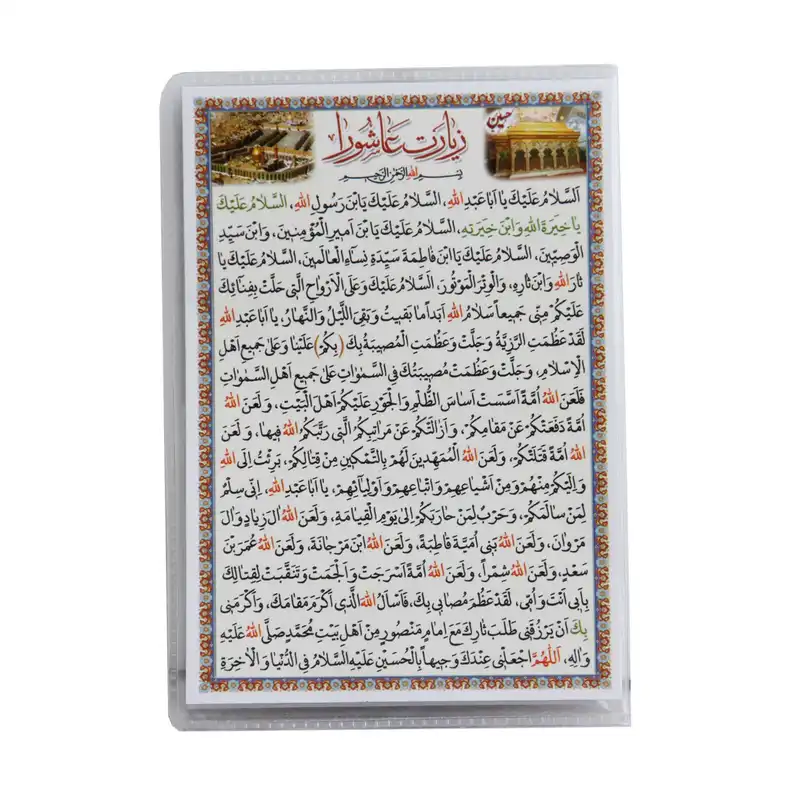 زیارت عاشورا
حسین
بسم الله الرحمن الرحیم
اَلسَّلامُ عَلَيْكَ يا اَبا عَبْدِ اللهِ، السَّلامُ عَلَيْكَ يَابْنَ رَسُولِ اللهِ، السَّلامُ عَلَيْكَ
يا خِيَرَةَ اللهِ وَابْنَ خِيَرَتِهِ، السَّلامُ عَلَيْكَ يَابْنَ اَميرِ الْمُؤْمِنينَ، وَابْنَ سَيِّدِ
الْوَصِيّينَ، السَّلامُ عَلَيْكَ يَا ابْنَ فاطِمَةَ سَيِّدَةِ نِساءِ الْعالَمينَ، السَّلامُ عَلَيْكَ يا
ثارَ اللهِ وَابْنَ ثارِهِ، وَالْوِتْرَ الْمَوْتُورَ، اَلسَّلامُ عَلَيْكَ وَعَلَى الْاَرْواحِ الَّتي حَلَّتْ بِفِنائِكَ
عَلَيْكُمْ مِنّي جَميعاً سَلامُ اللهِ اَبَداً ما بَقيتُ وَبَقِيَ اللَّيْلُ وَالنَّهارُ، يا اَبا عَبْدِ اللهِ
لَقَدْ عَظُمَتِ الرَّزِيَّةُ وَجَلَّتْ وَعَظُمَتِ الْمُصيبَةُ بِكَ (بِكُمْ) عَلَيْنا وَعَلى جَميعِ اَهْلِ
الْاِسْلامِ، وَجَلَّتْ وَعَظُمَتْ مُصيبَتُكَ فِي السَّمٰواتِ عَلى جَميعِ اَهْلِ السَّمٰواتِ
فَلَعَنَ اللهُ اُمَّةً اَسَّسَتْ اَساسَ الظُّلْمِ وَالْجَوْرِ عَلَيْكُمْ اَهْلَ الْبَيْتِ، وَلَعَنَ اللهُ
اُمَّةً دَفَعَتْكُمْ عَنْ مَقامِكُمْ، وَاَزالَتْكُمْ عَنْ مَراتِبِكُمُ الَّتي رَتَّبَكُمُ اللهُ فيها، وَلَعَنَ
اللهُ اُمَّةً قَتَلَتْكُمْ، وَلَعَنَ اللهُ الْمُمَهِّدينَ لَهُمْ بِالتَّمْكينِ مِنْ قِتالِكُمْ، بَرِئْتُ اِلَى اللهِ
وَاِلَيْكُمْ مِنْهُمْ وَمِنْ اَشْياعِهِمْ وَاَتْباعِهِمْ وَاَوْلِيائِهِمْ، يا اَبا عَبْدِ اللهِ، اِنّي سِلْمٌ
لِمَنْ سالَمَكُمْ، وَحَرْبٌ لِمَنْ حارَبَكُمْ اِلى يَوْمِ الْقِيامَةِ، وَلَعَنَ اللهُ الَ زِيادٍ وَالَ
مَرْوانَ، وَلَعَنَ اللهُ بَني اُمَيَّةَ قاطِبَةً، وَلَعَنَ اللهُ ابْنَ مَرْجانَةَ، وَلَعَنَ اللهُ عُمَرَ بْنَ
سَعْدٍ، وَلَعَنَ اللهُ شِمْراً، وَلَعَنَ اللهُ اُمَّةً اَسْرَجَتْ وَاَلْجَمَتْ وَتَنَقَّبَتْ لِقِتالِكَ
بِاَبي اَنْتَ وَاُمّي، لَقَدْ عَظُمَ مُصابي بِكَ، فَاَسْأَلُ اللهَ الَّذي اَكْرَمَ مَقامَكَ، وَاَكْرَمَني
بِكَ اَنْ يَرْزُقَني طَلَبَ ثارِكَ مَعَ اِمامٍ مَنْصُورٍ مِنْ اَهْلِ بَيْتِ مُحَمَّدٍ صَلَّى اللهُ عَلَيْهِ
وَالِهِ، اَللّٰهُمَّ اجْعَلْني عِنْدَكَ وَجيهاً بِالْحُسَيْنِ عَلَيْهِ السَّلامُ فِي الدُّنْيا وَالْاخِرَةِ